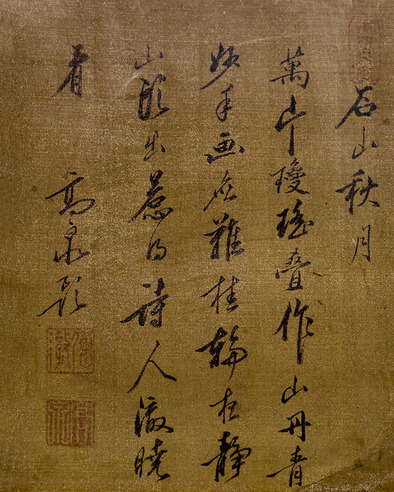 石山秋月
萬片瓊瑤叠作山丹青
妙手画應難桂輪夜静
山頭出惹得詩人徹曉
看
高泉題